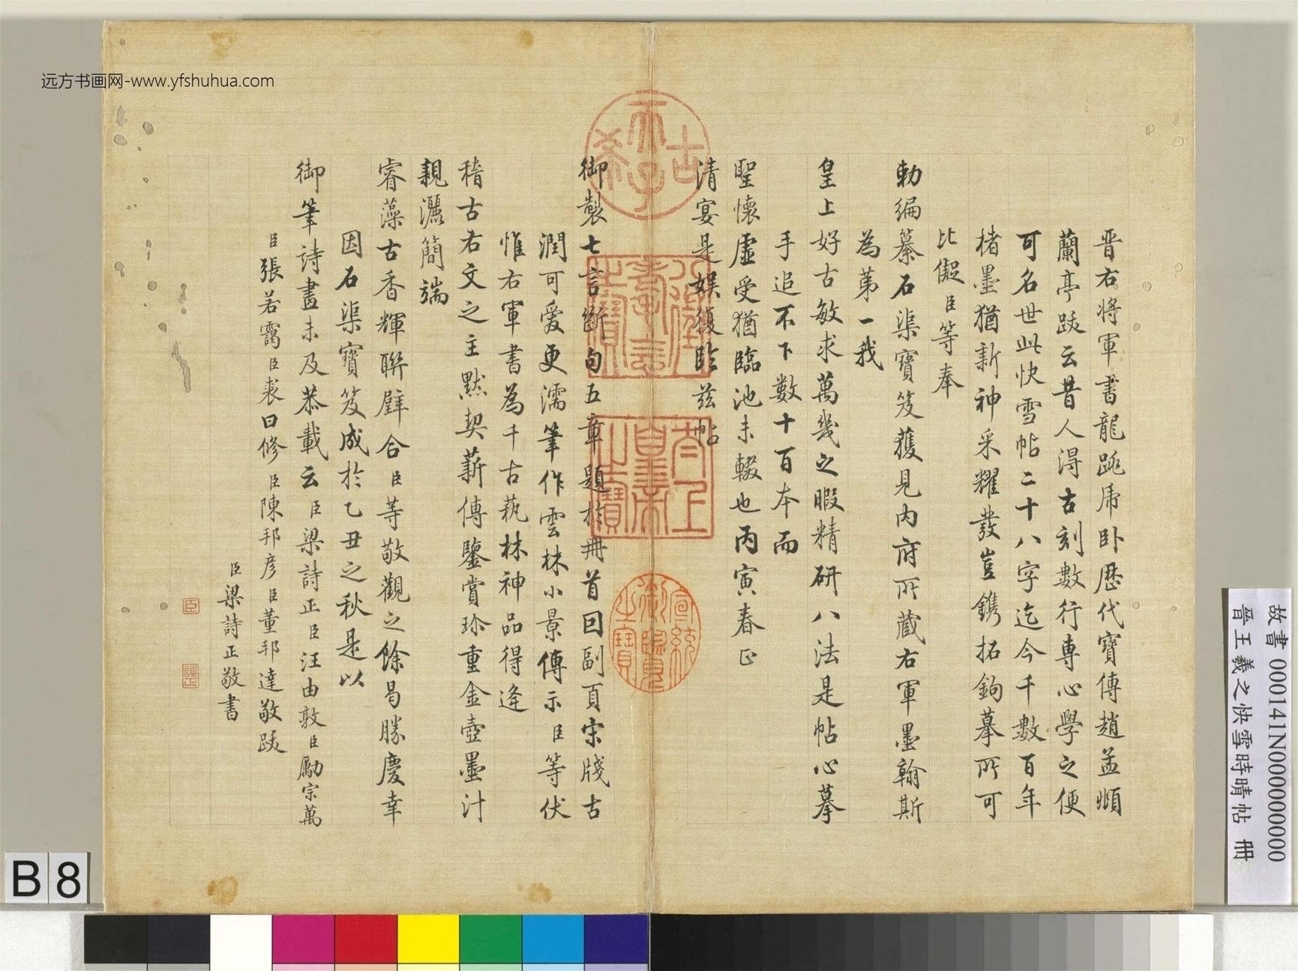 远方书画网-www.yfshuhua.com
晋右将軍書龍跳虎卧歷代寶傳趙孟頫
蘭亭跋云昔人得古刻數行專心學之便
可名世此快雪帖二十八字迄今千數百年
楮墨猶新神采耀發豈鐫拓鉤摹所可
比儗臣等奉
勅編纂石渠寶笈獲見内府所藏右軍墨翰斯
為第一我
皇上好古敏求萬幾之暇精研八法是帖心摹
手追不下數十百本而
聖懷虛受猶臨池未輟也丙寅春正
清宴是娛復臨茲帖
御製七言斷句五章題於冊首回副頁宋牋古
潤可愛更濡筆作雲林小景傳示臣等伏
惟右軍書為千古蓺林神品得逢
稽古右文之主默契薪傳鑒賞珍重金壺墨汁
親灑簡端
睿藻古香輝聯璧合臣等敬觀之餘曷勝慶幸
因石渠寶笈成於乙丑之秋是以
御筆詩畫未及恭載云臣梁詩正臣汪由敦臣勵宗萬
臣張若靄臣裘曰修臣陳邦彦臣董邦達敬跋
臣梁詩正敬書
古希天子
八徵耄念之寶
太上皇帝之寶
宣統御覽之寶
臣
故書 000141N000000000
晉王羲之快雪時晴帖 冊
B 8